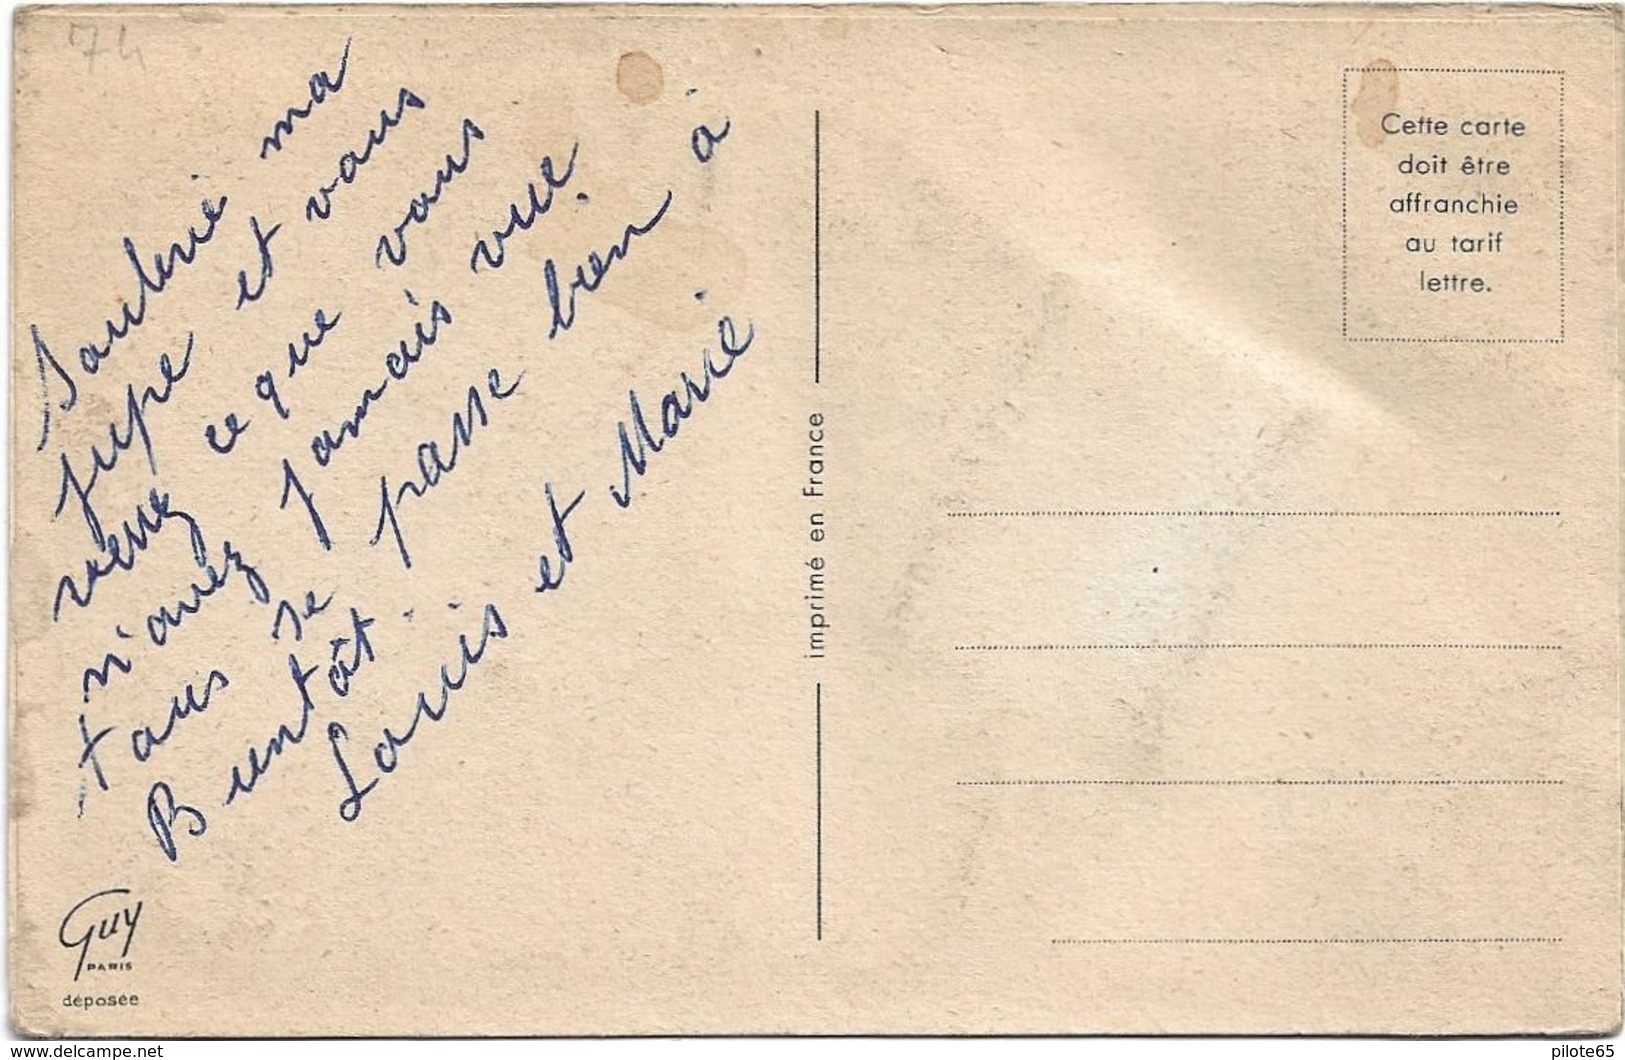 74
Soulevé ma
jupe et vous
verrez ce que vous
n'avez jamais vue
tous se passe bien à
Bientôt.
Louis et Marie
Guy
PARIS
déposée
Imprimé en France
Cette carte
doit être
affranchie
au tarif
lettre.
www.delcampe.net
pilote65